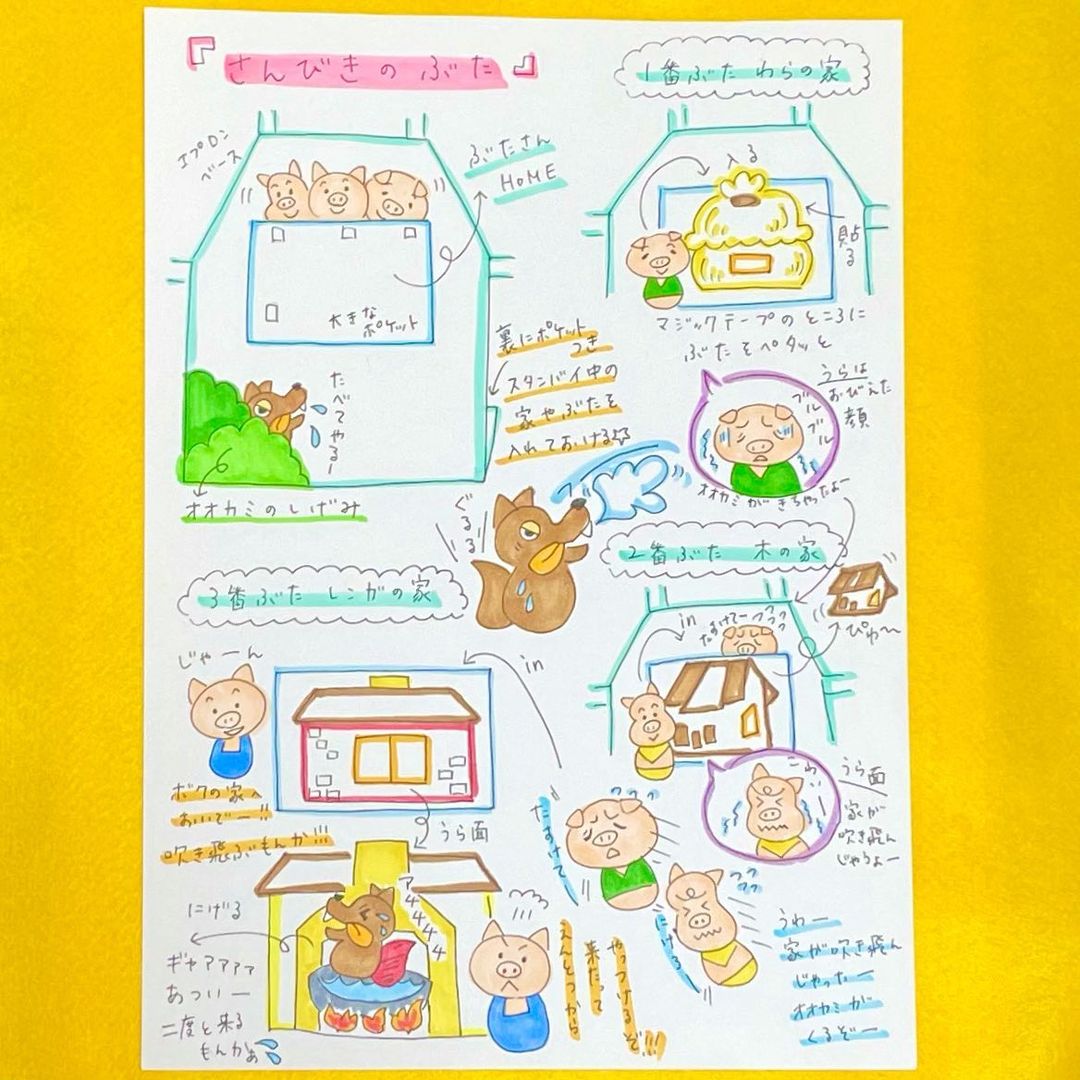 『さんびきのぶた』
エプロン
ベース
ぶたさん
HOME
大きな
ポケット
たべてやるー
オオカミのしげみ
裏にポケット
つき
スタンバイ中の
家やぶたを
入れておける☆
1番ぶた わらの家
入る
貼る
マジックテープのところに
ぶたをペタッと
うらは
おびえた
顔
ブルブル
オオカミがきちゃったよー
ぐるる
フー
2番ぶた 木の家
in
たすけてーフフフ
ぴゅ〜
こわいー
うら面
家が
吹き飛ん
じゃうよー
3番ぶた レンガの家
じゃーん
in
ボクの家へ
おいでー!!
吹き飛ぶもんか!!!
うら面
たすけて
フフフ
にげろー
うわー
家が吹き飛ん
じゃったー
オオカミが
くるぞー
アチチチチ
にげる
ギャアアアア
あついー
二度と来る
もんかぁ
えんとつから
来たって
やっつけるぞ!!!